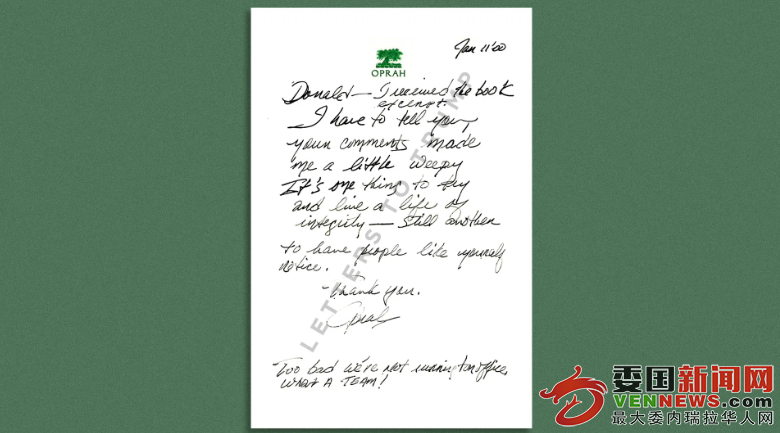 Jan 11'00
OPRAH
Donald— I received the book
excerpt.
I have to tell you,
your comments made
me a little weepy
It's one thing to try
and live a life of
integrity — still another
to have people like yourself
notice.
Thank you.
Oprah
Too bad we're not running for office,
WHAT A TEAM!
LETTERS TO TRUMP
委国新闻网
VENNEWS.COM
最大委内瑞拉华人网